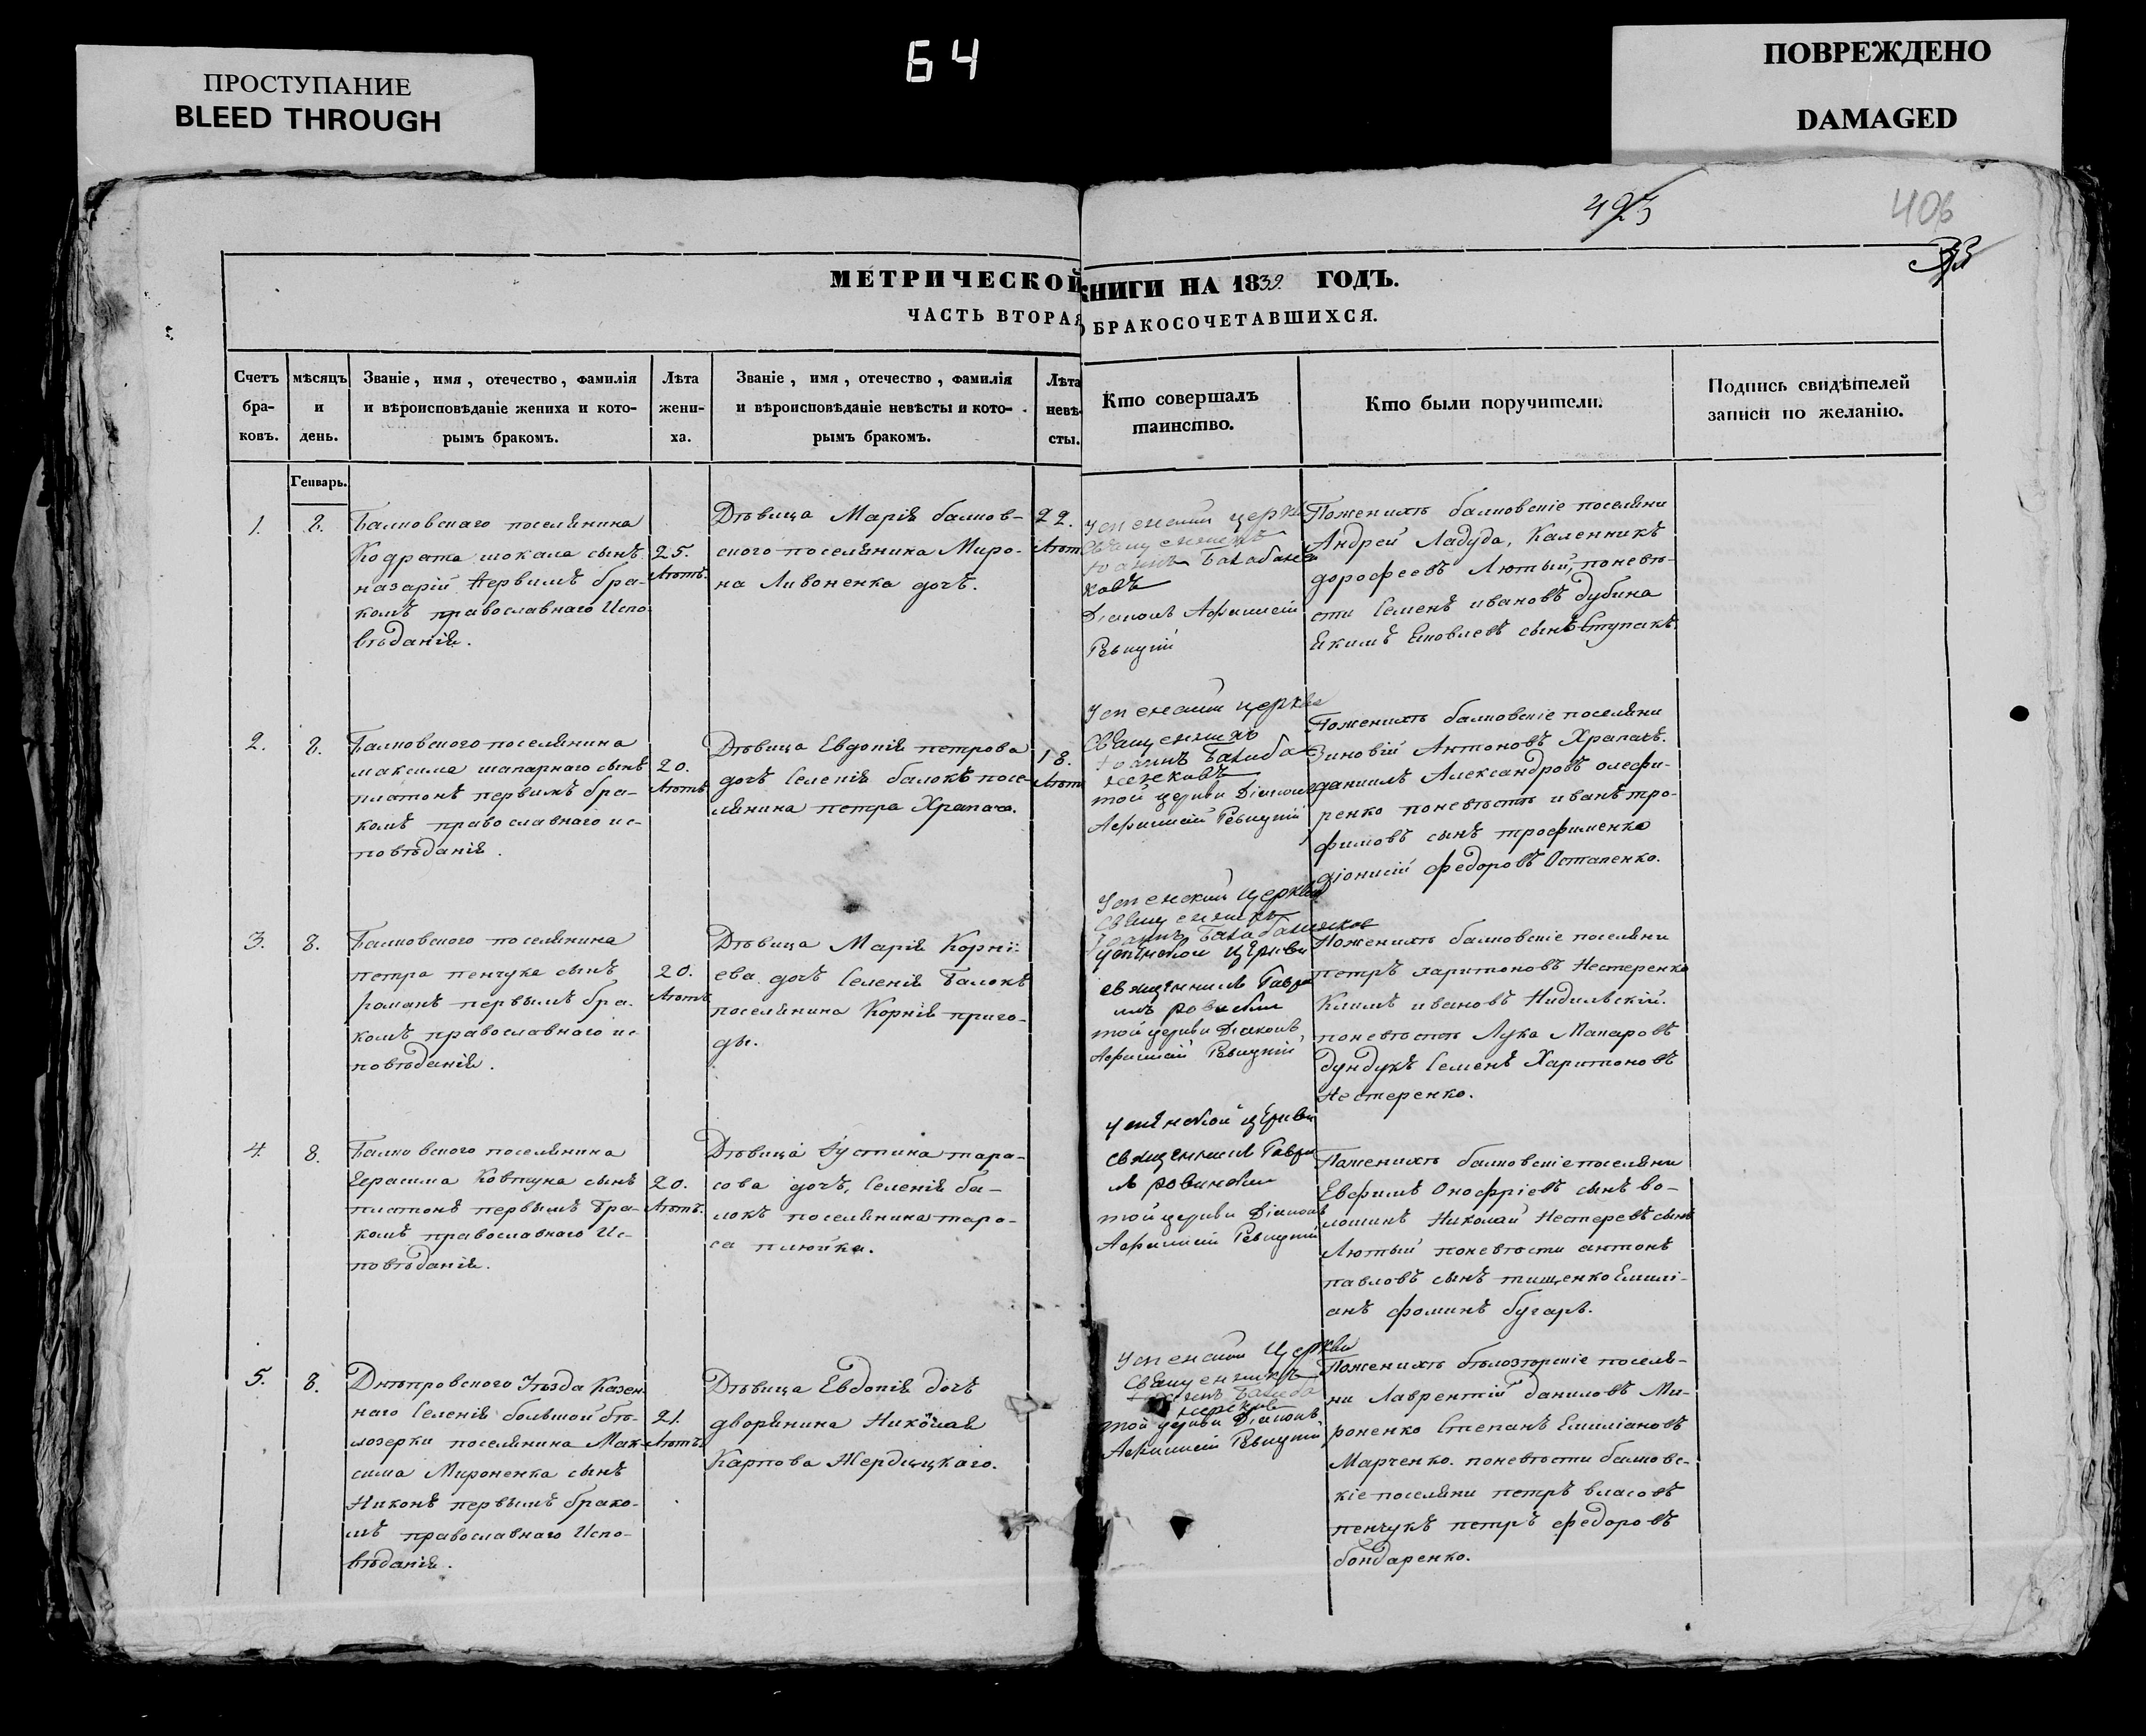 ПРОСТУПАНИЕ
BLEED THROUGH
64
ПОВРЕЖДЕНО
DAMAGED
425
406
МЕТРИЧЕСКОЙ КНИГИ НА 1839. ГОДЪ.
ЧАСТЬ ВТОРАЯ О БРАКОСОЧЕТАВШИХСЯ.
Счетъ бра-ковъ.
мѣсяцъ и день.
Званіе, имя, отечество, фамилія
и вѣроисповѣданіе жениха и кото-
рымъ бракомъ.
Лѣта
жени-
ха.
Званіе, имя, отечество, фамилія
и вѣроисповѣданіе невѣсты и кото-
рымъ бракомъ.
Лѣта
невѣ-
сты.
Кто совершалъ
таинство.
Кто были поручители.
Подпись свидѣтелей
записи по желанію.
Генварь.
1.
8.
Балковскаго поселянина
Кодрата шокала сынъ
назарій первымъ бра-
комъ православнаго Испо
вѣданія.
25.
лѣтъ.
Дѣвица Марія балков-
ского поселянина Миро-
на Ливоненка дочъ.
22.
лѣт
Успенской церкви
Священникъ
Іоаннъ
Діаконъ
Поженихѣ балковскіе поселяни
Андрей Ладуда, Каленникъ
дорофеевъ Лютый, поневѣ-
сти Семенъ ивановъ дубина
Якимъ Яковлевъ сынъ Ступакъ.
2.
8.
Балковского поселянина
максима шапарнаго сынъ
платонъ первымъ бра-
комъ православнаго ис-
повѣданія.
20.
лѣтъ
Дѣвица Евдокія петрова
дочъ Селенія балокъ посе-
лянина петра Храпача.
18.
лѣт
Успенской церкви
Священникъ
Іоаннъ
той церкви Діаконъ
Поженихѣ балковскіе поселяни
Зиновій Антоновъ Храпачъ.
даниилъ Александровъ олефи-
ренко поневѣстѣ иванъ тро-
фимовъ сынъ трофименко
діонисій федоровъ Остапенко.
3.
8.
Балковского поселянина
петра пенчука сынъ
романъ первымъ бра-
комъ православного ис-
повѣданія.
20.
лѣтъ
Дѣвица Марія Корні-
ева дочъ Селенія Балокъ
поселянина Корнія приго-
ды.
Успенской церкви
Священникъ
Іоаннъ
Успенской церкви
священникъ Гаври
той церкви Діаконъ
Поженихѣ балковскіе поселяни
петръ харитоновъ Нестеренко
Климъ ивановъ Нидильскій.
поневѣстѣ Лука Макаровъ
Дундукъ Семенъ Харитоновъ
Нестеренко.
4.
8.
Балковского поселянина
Герасима Ковтуна сынъ
платонъ первымъ бра-
комъ православнаго Ис-
повѣданія.
20.
лѣтъ.
Дѣвица Іустина тара-
сова дочъ, Селенія ба-
локъ поселянина тара-
са плюйка.
Успенской церкви
священникъ Гаври
той церкви Діаконъ
Поженихѣ балковскіе поселяни
Евфимъ Онофріевъ сынъ во-
лошинъ Николай Нестеревъ сынъ
Лютый поневѣсти антонъ
павловъ сынъ тищенко Емилі-
анъ фоминъ бугаръ.
5.
8.
Днѣпровского Уѣзда Казен-
наго Селенія большой бѣ-
лозерки поселянина Мак-
сима Мироненка сынъ
Никонъ первымъ брако-
мъ православнаго Испо-
вѣданія.
21.
лѣтъ.
Дѣвица Евдокія дочъ
дворянина Николая
Карпова Жердицкаго.
Успенской Церкви
Священникъ
той церкви Діаконъ
Поженихѣ бѣлозѣрскіе поселя-
ни Лаврентій даниловъ Ми-
роненко Степанъ Емиліановъ
Марченко. поневѣсти балковс-
кіе поселяни петръ власовъ
пенчукъ петръ федоровъ
бондаренко.